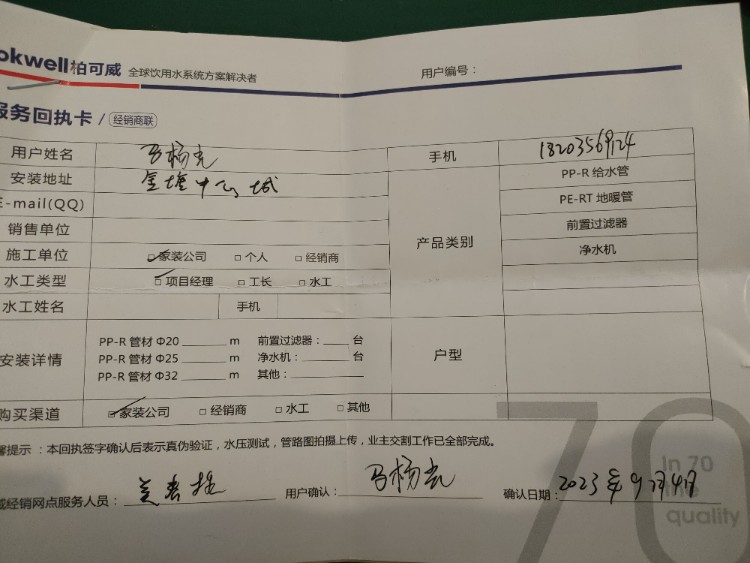 okwell柏可威 全球饮用水系统方案解决者 用户编号：
服务回执卡 / 经销商联
用户姓名 马杨 手机 18203569124
安装地址 金域中心城 PP-R 给水管
E-mail(QQ) PE-RT 地暖管
销售单位 产品类别 前置过滤器
施工单位 □家装公司 □ 个人 □ 经销商 净水机
水工类型 □项目经理 □ 工长 □ 水工
水工姓名 手机
安装详情 户型
PP-R 管材 Φ20 m 前置过滤器： 台
PP-R 管材 Φ25 m 净水机： 台
PP-R 管材 Φ32 m 其他：
购买渠道 □家装公司 □ 经销商 □ 水工 □ 其他
提示 ：本回执签字确认后表示真伪验证，水压测试，管路图拍摄上传，业主交割工作已全部完成。
经销网点服务人员： 用户确认： 马杨 确认日期： 2023年9月4日
70
In 70
quality